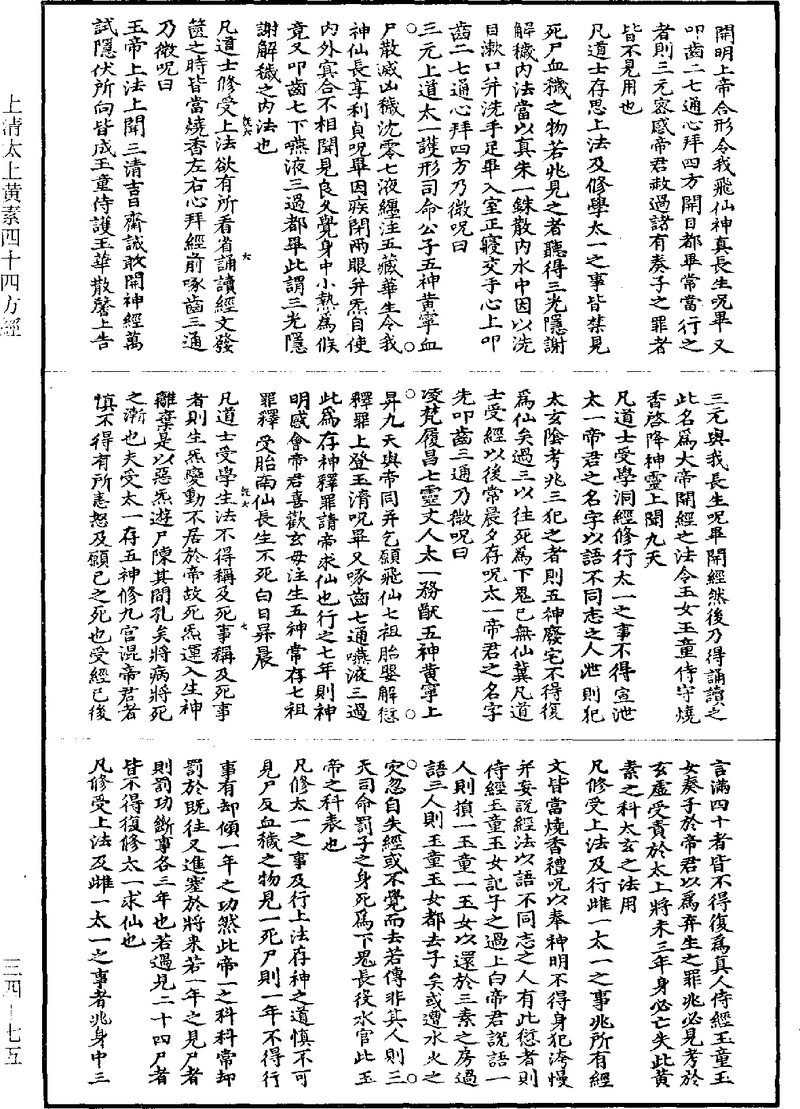 開明上帝合形令我飛仙神真長生呪畢又
叩齒二七通心拜四方開目都畢常當行之
者則三元密感帝君赦過諸有奏子之罪者
皆不見用也
凡道士存思上法及修學太一之事皆禁見
死尸血穢之物若兆見之者聽得三光隱謝
解穢內法當以真朱一銖散內水中因以洗
目漱口并洗手足畢入室正寢交手心上叩
齒二七通心拜四方乃微呪曰
三元上道太一護形司命公子五神黃寧血
尸散滅凶穢沈零七液纏注五藏華生令我
神仙長享利貞呪畢因疾閉兩眼并炁自使
內外冥合不相聞見良久覺身中小熱爲候
竟又叩齒七下嚥液三過都畢此謂三光隱
謝解穢之內法也
凡道士修受上法欲有所看省誦讀經文發
篋之時皆當燒香左右心拜經前啄齒三通
乃微呪曰
玉帝上法上聞三清吉日齋誠敢開神經萬
試隱伏所向皆成玉童侍護玉華散馨上告
三元與我長生呪畢開經然後乃得誦讀之
此名爲大帝開經之法令玉女玉童侍守燒
香啓降神靈上聞九天
凡道士受學洞經修行太一之事不得宣泄
太一帝君之名字以語不同志之人泄則犯
太玄陰考兆三犯之者則五神廢宅不得復
爲仙矣過三以往死爲下鬼已無仙冀凡道
士受經以後常晨夕存呪太一帝君之名字
先叩齒三通乃微呪曰
凌梵履昌七靈丈人太一務猷五神黃寧上
昇九天與帝同并乞願飛仙七祖胎嬰解愆
釋罪上登玉清呪畢又啄齒七通嚥液三過
此爲存神釋罪請帝求仙也行之七年則神
明感會帝君喜歡玄母注生五神常存七祖
罪釋受胎南仙長生不死白日昇晨
凡道士受學生法不得稱及死事稱及死事
者則生炁變動不居於帝故死炁運入生神
離棄是以惡炁遊尸陳其間孔矣將病將死
之漸也夫受太一存五神修九宮混帝君者
慎不得有所恚怒及願已之死也受經已後
言滿四十者皆不得復爲真人侍經玉童玉
女奏子於帝君以爲弃生之罪兆必見考於
玄虛受責於太上將未三年身必亡失此黃
素之科太玄之法用
凡修受上法及行雌一太一之事兆所有經
文皆當燒香禮呪以奉神明不得身犯洿慢
并妄說經法以語不同志之人有此愆者則
侍經玉童玉女記子之過上白帝君說語一
人則損一玉童一玉女以還於三素之房過
語三人則玉童玉女都去子矣或遭水火之
灾忽自失經或不覺而去若傳非其人則三
天司命罰子之身死爲下鬼長役水官此玉
帝之科表也
凡修太一之事及行上法存神之道慎不可
見尸及血穢之物見一死尸則一年不得行
事有却傾一年之功然此帝一之科科常却
罰於既往又進塞於將來若一年之見尸者
則罰功斷事各三年也若過見二十四尸者
皆不得復修太一求仙也
凡修受上法及雌一太一之事者兆身中三
上清太上黃素四十四方經
三四—七五